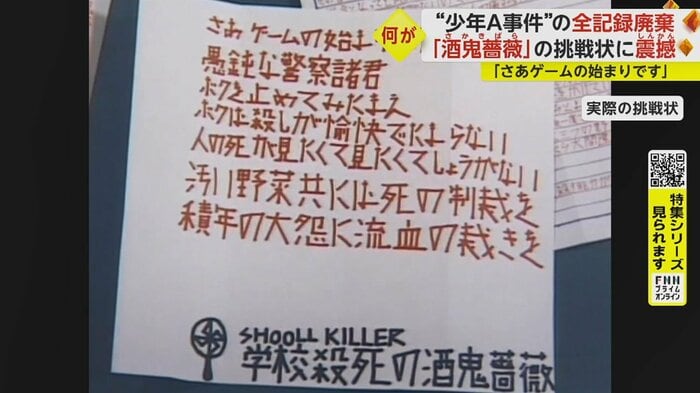 何が
"少年A事件"の全記録廃棄
さかきばら
しんかん
「酒鬼薔薇」の挑戦状に震撼
「さあゲームの始まりです」
実際の挑戦状
さあ ゲームの始ま
愚鈍な警察諸君
ボクを止めてみたまえ
ボクは殺しが愉快でたまらない
人の死が見たくて見たくてしょうがない
汚い野菜共には死の制裁を
積年の大怨に流血の裁きを
SHOOLL KILLER
学校殺死の酒鬼薔薇
特集シリーズ
見られます
FNN
プライム
オンライン